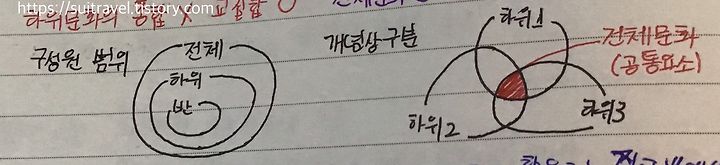 https://suitravel.tistory.com
하위문화의 총합 X 교집합 O
구성원 범위
전체
하위
반
개념상 구분
하위1
전체문화
(공통요소)
하위2
하위3